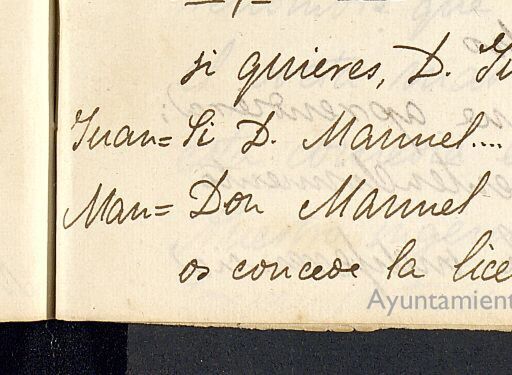 si quieres, D.
Juan= Si D. Manuel....
Man= Don Manuel
os concede la lice
Ayuntamient